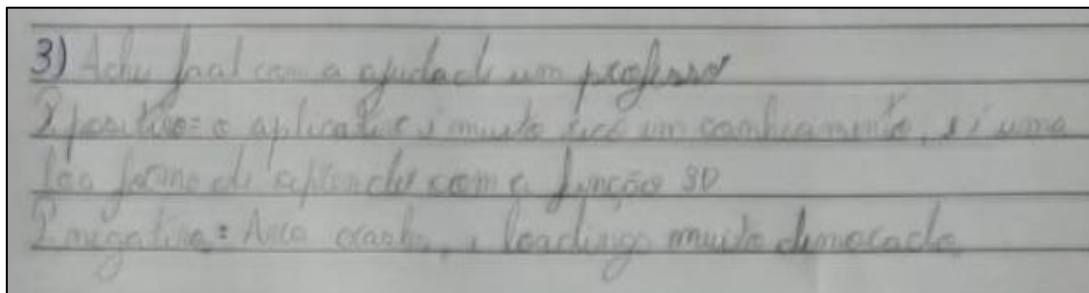 3) Achei facil com a ajuda de um professor
P. positivo = o aplicativo é muito rico em conhecimento, e é uma
boa forma de aprender com a função 3D
P. negativo = crashs, e loadings muito demorado